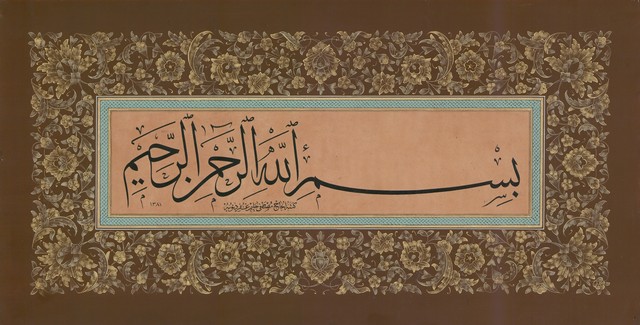 بسم الله الرحمن الرحيم
١٣٨١